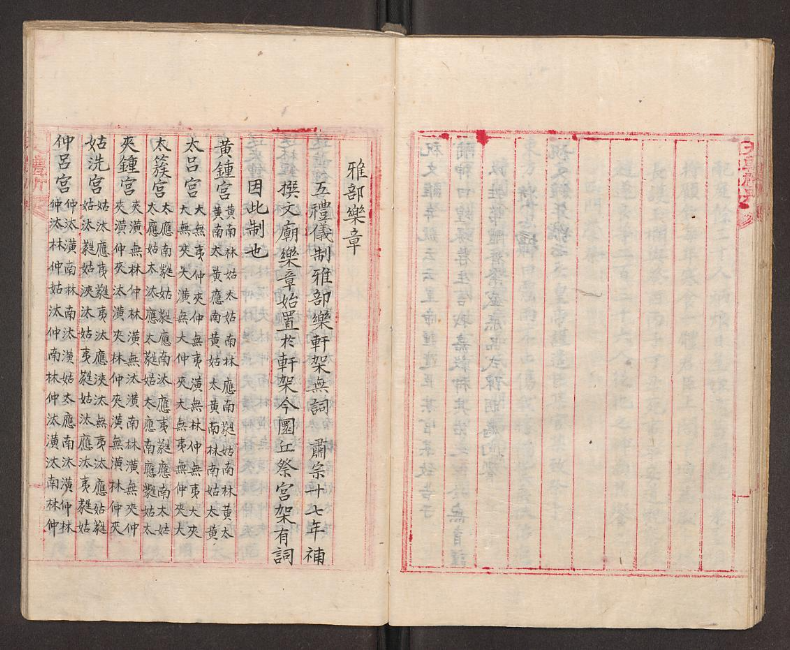 雅部樂章
五禮儀制雅部樂軒架無詞 肅宗十七年補
撰文廟樂章始置於軒架今圜丘祭宮架有詞
因此制也
黃鍾宮
黃南林姑太姑南林應南蕤姑南林黃太
黃南太黃應南黃姑太黃林南姑太黃
大呂宮
大無夷仲夾仲無夷潢無林仲無夷大夾
大無夾大潢無大仲夾大夷無仲夾大
太簇宮
太應南蕤姑蕤應南汰應夷蕤應南太姑
太應姑太汰應太蕤姑太南應蕤姑太
夾鍾宮
夾潢無林仲林潢無汰潢南林潢無夾仲
夾潢仲夾汰潢夾林仲夾無潢林仲夾
姑洗宮
姑汰應夷蕤夷汰應浹汰無夷汰應姑蕤
姑汰蕤姑浹汰姑夷蕤姑應汰夷蕤姑
仲呂宮
仲汰潢南林南汰潢姑汰應南汰潢仲林
仲汰林仲姑汰仲南林仲潢汰南林仲